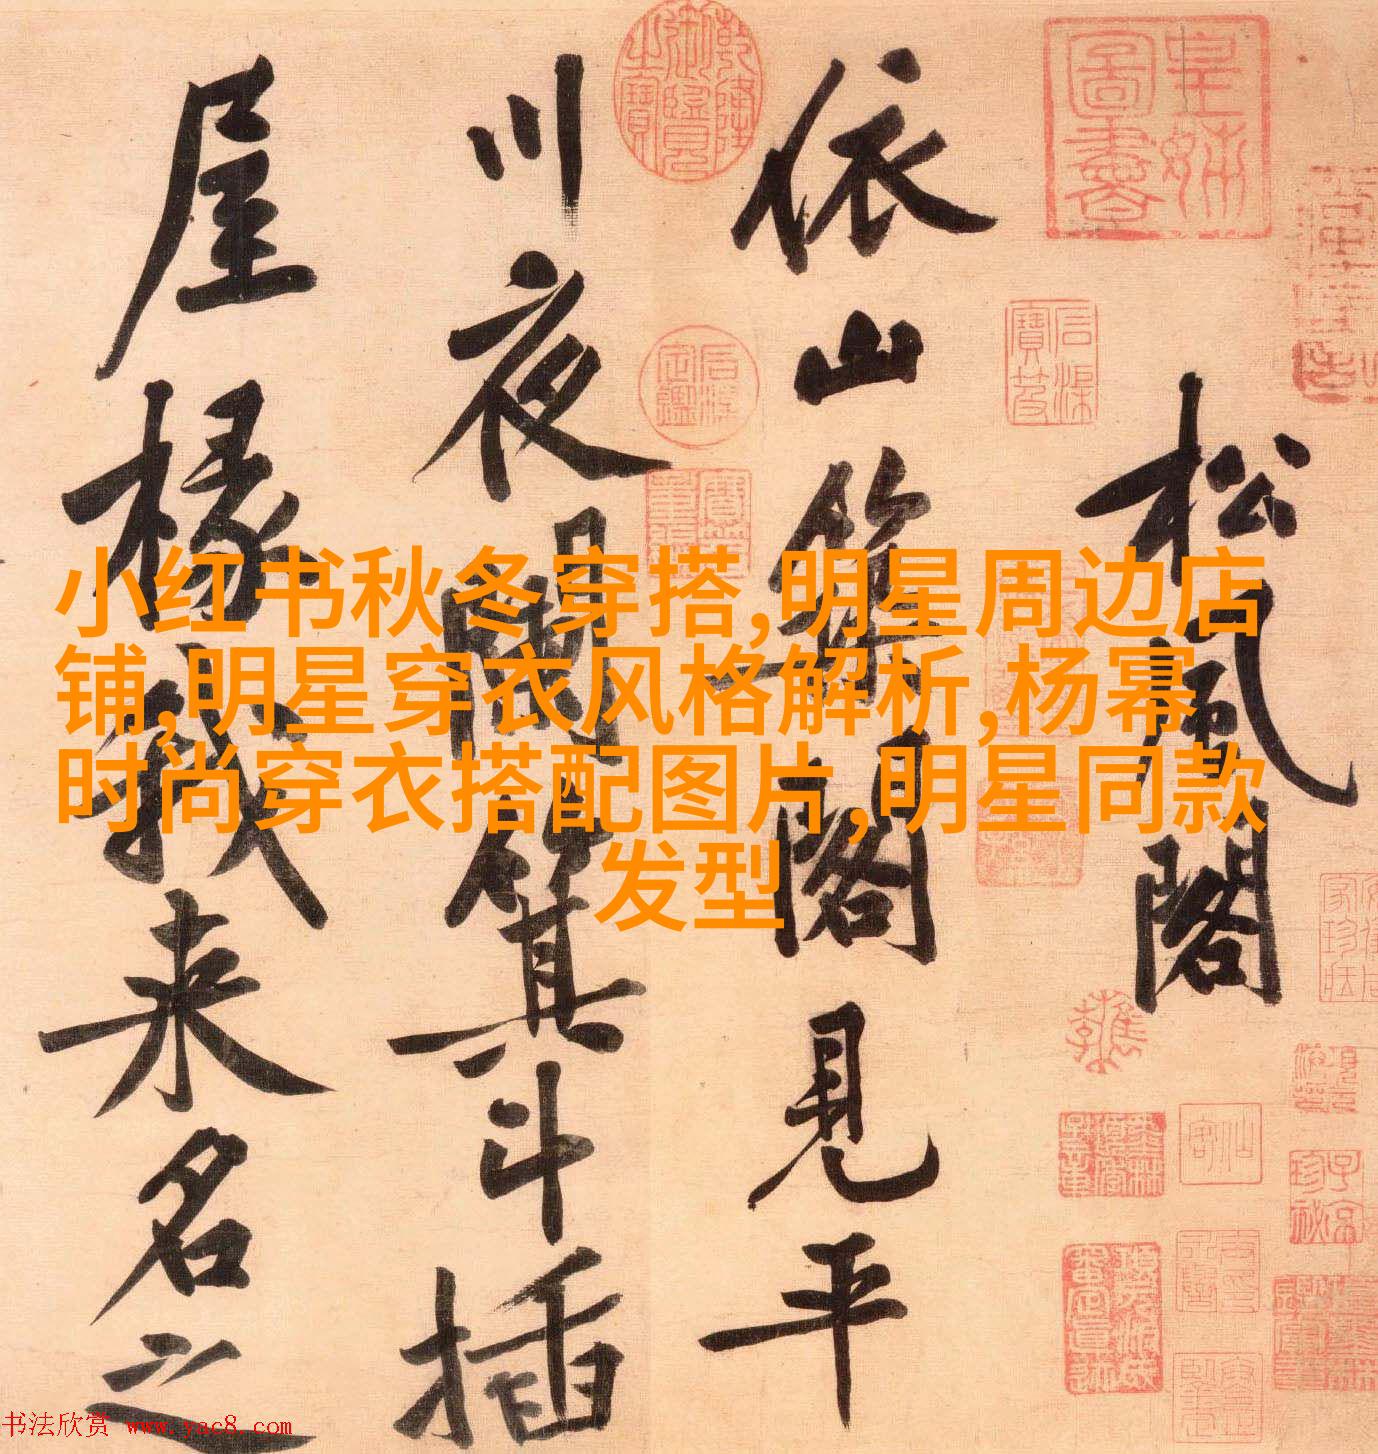 松風閣
依山築閣見平
川夜闌箕斗插
屋椽我来名之
小红书秋冬穿搭,明星周边店
铺,明星穿衣风格解析,杨幂
时尚穿衣搭配图片,明星同款
发型
书法欣赏 www.yac8.com